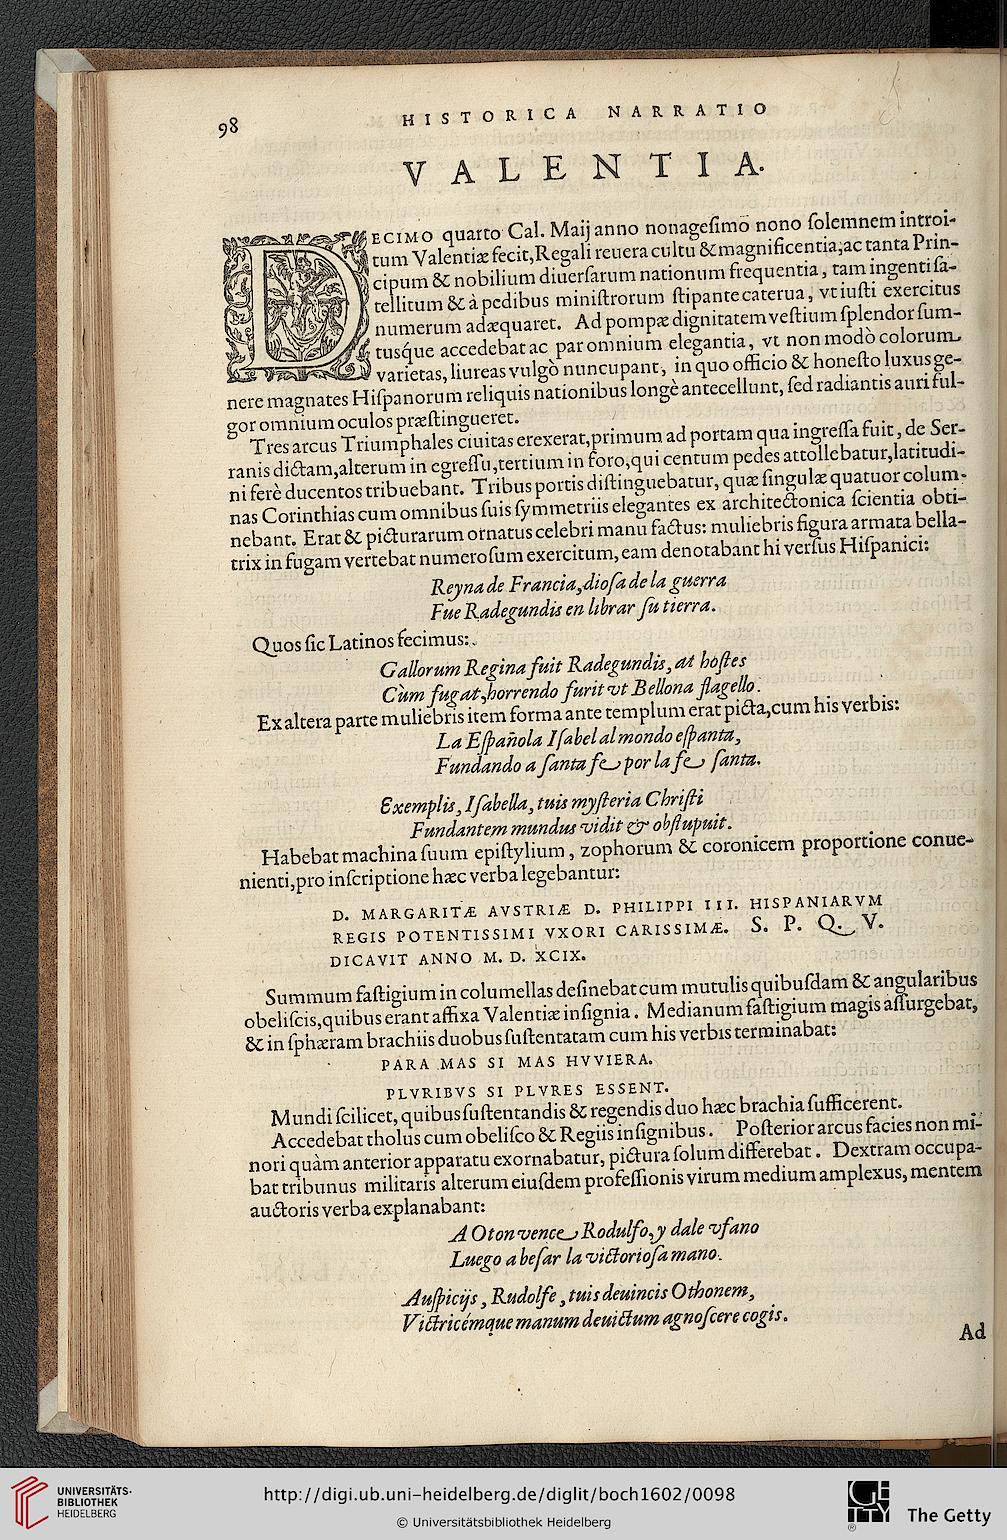 98
HISTORICA NARRATIO
VALENTIA.
DECIMO quarto Cal. Maij anno nonagesimo nono solemnem introi-
tum Valentiæ fecit, Regali reuera cultu & magnificentia, ac tanta Prin-
cipum & nobilium diuersarum nationum frequentia, tam ingenti sa-
tellitum & à pedibus ministrorum stipante caterua, vt iusti exercitus
numerum adæquaret. Ad pompæ dignitatem vestium splendor sum-
tusq́ue accedebat ac par omnium elegantia, vt non modò colorum
varietas, liureas vulgò nuncupant, in quo officio & honesto luxus ge-
nere magnates Hispanorum reliquis nationibus longè antecellunt, sed radiantis auri ful-
gor omnium oculos præstingueret.
Tres arcus Triumphales ciuitas erexerat, primum ad portam qua ingressa fuit, de Ser-
ranis dictam, alterum in egressu, tertium in foro, qui centum pedes attollebatur, latitudi-
ni ferè ducentos tribuebant. Tribus portis distinguebatur, quæ singulæ quatuor colum-
nas Corinthias cum omnibus suis symmetriis elegantes ex architectonica scientia obti-
nebant. Erat & picturarum ornatus celebri manu factus: muliebris figura armata bella-
trix in fugam vertebat numerosum exercitum, eam denotabant hi versus Hispanici:
Reyna de Francia, diosa de la guerra
Fue Radegundis en librar su tierra.
Quos sic Latinos fecimus:
Gallorum Regina fuit Radegundis, at hostes
Cùm fugat, horrendo furit vt Bellona flagello.
Ex altera parte muliebris item forma ante templum erat picta, cum his verbis:
La Española Isabel al mondo espanta,
Fundando a santa fe por la fe santa.
Exemplis, Isabella, tuis mysteria Christi
Fundantem mundus vidit & obstupuit.
Habebat machina suum epistylium, zophorum & coronicem proportione conue-
nienti, pro inscriptione hæc verba legebantur:
D. MARGARITÆ AVSTRIÆ D. PHILIPPI III. HISPANIARVM
REGIS POTENTISSIMI VXORI CARISSIMÆ. S. P. Q. V.
DICAVIT ANNO M. D. XCIX.
Summum fastigium in columellas desinebat cum mutulis quibusdam & angularibus
obeliscis, quibus erant affixa Valentiæ insignia. Medianum fastigium magis assurgebat,
& in sphæram brachiis duobus sustentatam cum his verbis terminabat:
PARA MAS SI MAS HVVIERA.
PLVRIBVS SI PLVRES ESSENT.
Mundi scilicet, quibus sustentandis & regendis duo hæc brachia sufficerent.
Accedebat tholus cum obelisco & Regiis insignibus. Posterior arcus facies non mi-
nori quàm anterior apparatu exornabatur, pictura solum differebat. Dextram occupa-
bat tribunus militaris alterum eiusdem professionis virum medium amplexus, mentem
auctoris verba explanabant:
A Oton vence Rodulfo, y dale vfano
Luego a besar la victoriosa mano.
Auspicijs, Rudolfe, tuis deuincis Othonem,
Victricémque manum deuictum agnoscere cogis.
Ad
UNIVERSITÄTS-
BIBLIOTHEK
HEIDELBERG
http://digi.ub.uni-heidelberg.de/diglit/boch1602/0098
© Universitätsbibliothek Heidelberg
GETTY
®
The Getty